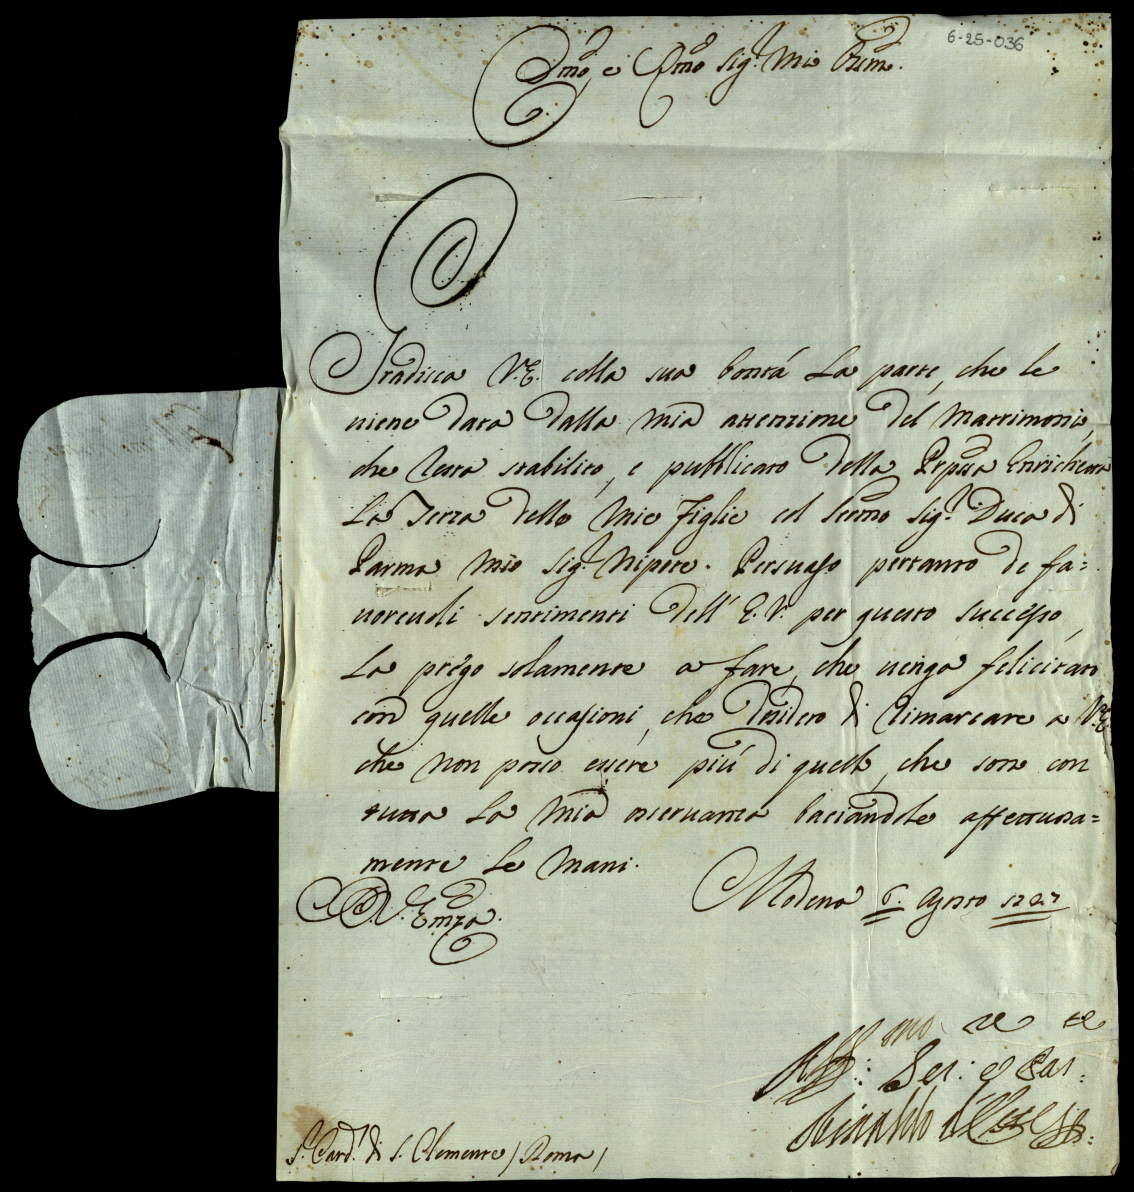 6-25-036
Emo, e Rmo Sig.r Mio Ossmo.
Gradisca V.E. colla sua bontà La parte, che le
viene data dalla mia attenzione del Matrimonio,
che resta stabilito, e pubblicato della Prpssa Enrichetta
La Terza delle Mie Figlie col Sermo Sig.r Duca di
Parma mio Sig.r Nipote. Persuaso pertanto de fa=
vorevoli sentimenti dell' E.V. per questo successo,
La prego solamente a fare, che venga felicitato
con quelle occasioni, che desidero di rimarcare a V.E.
che non posso essere più di quello, che sono con
tutta La mia osservanza baciandole affettuosa=
mente Le Mani.
D. V. Emza.
Modena 6. Agosto 1727
Affmo: Ser: e Par:
Rinaldo d'Este
S.r Card.l di S. Clemente / Roma /